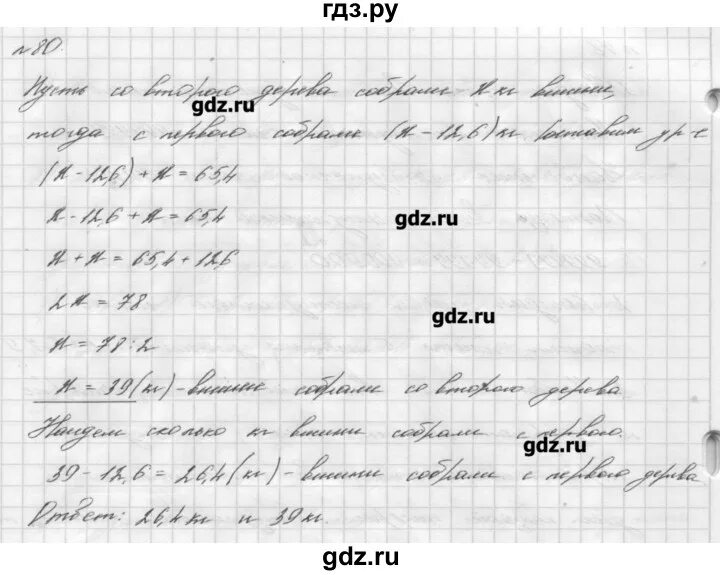 гдз.ру
№80.
Пусть со второго дерева собрали х кг вишни,
gdz.ru
тогда с первого собрали (х-12,6) кг. Составим ур-е
(х-12,6)+х=65,4
х-12,6+х=65,4
gdz.ru
х+х=65,4+12,6
2х=78
gdz.ru
х=78:2
х=39(кг)-вишни собрали со второго дерева
Найдем сколько кг вишни собрали с первого.
gdz.ru
39-12,6=26,4(кг)-вишни собрали с первого дерева
Ответ: 26,4кг и 39кг.
gdz.ru